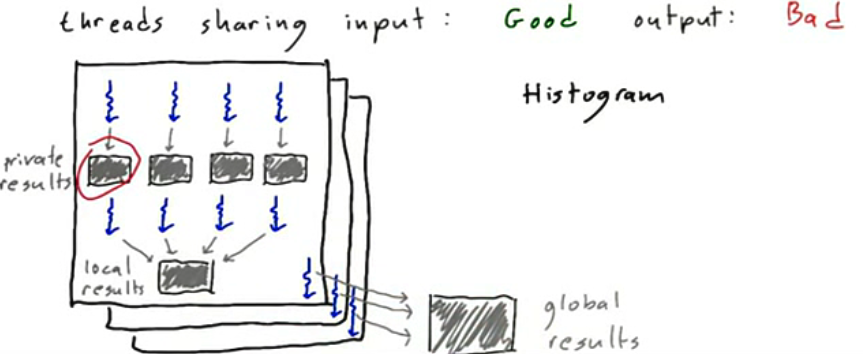 threads sharing input: Good output: Bad
Histogram
private
results
local
results
global
results